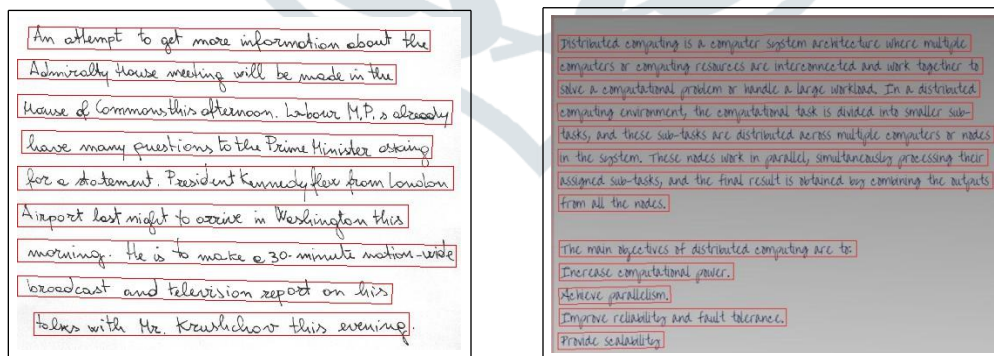 An attempt to get more information about the
Admiralty House meeting will be made in the
House of Commons this afternoon. Labour M.P.s already
have many questions to the Prime Minister asking
for a statement. President Kennedy flew from London
Airport last night to arrive in Washington this
morning. He is to make a 30-minute nation-wide
broadcast and television report on his
talks with Mr. Krushchov this evening.
Distributed computing is a computer system architecture where multiple
computers or computing resources are interconnected and work together to
solve a computational problem or handle a large workload. In a distributed
computing environment, the computational task is divided into smaller sub-
tasks, and these sub-tasks are distributed across multiple computers or nodes
in the system. These nodes work in parallel, simultaneously processing their
assigned sub-tasks, and the final result is obtained by combining the outputs
from all the nodes.
The main objectives of distributed computing are to:
Increase computational power.
Achieve parallelism.
Improve reliability and fault tolerance.
Provide scalability